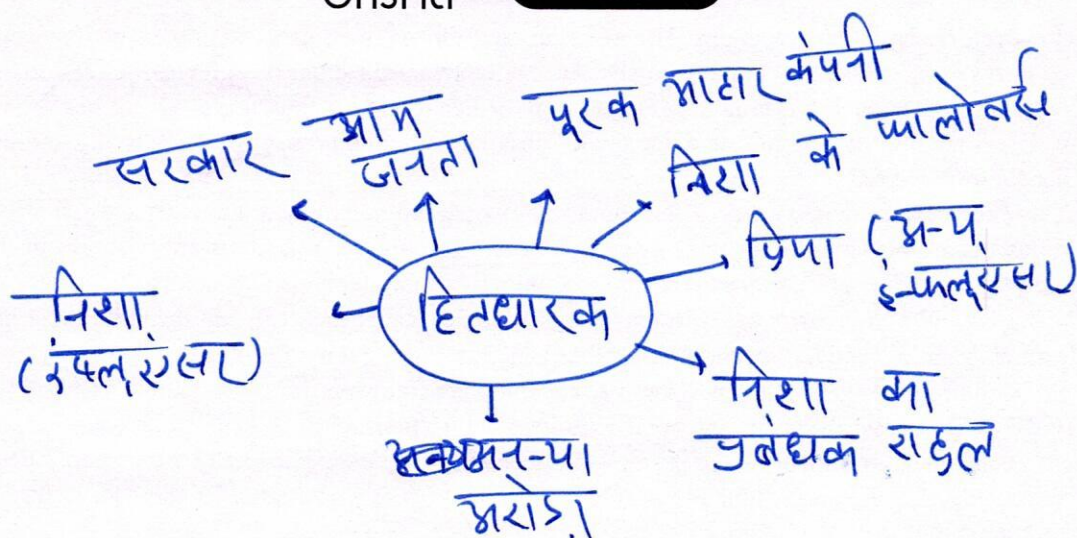 सरकार
आम
जनता
पूरक आहार कंपनी
निशा के फालोवर्स
प्रिया (अन्य
इन्फ्लूएंसर)
निशा का
प्रबंधक राहुल
अनन्या
अरोड़ा
निशा
(इंफ्लूएंसर)
हितधारक